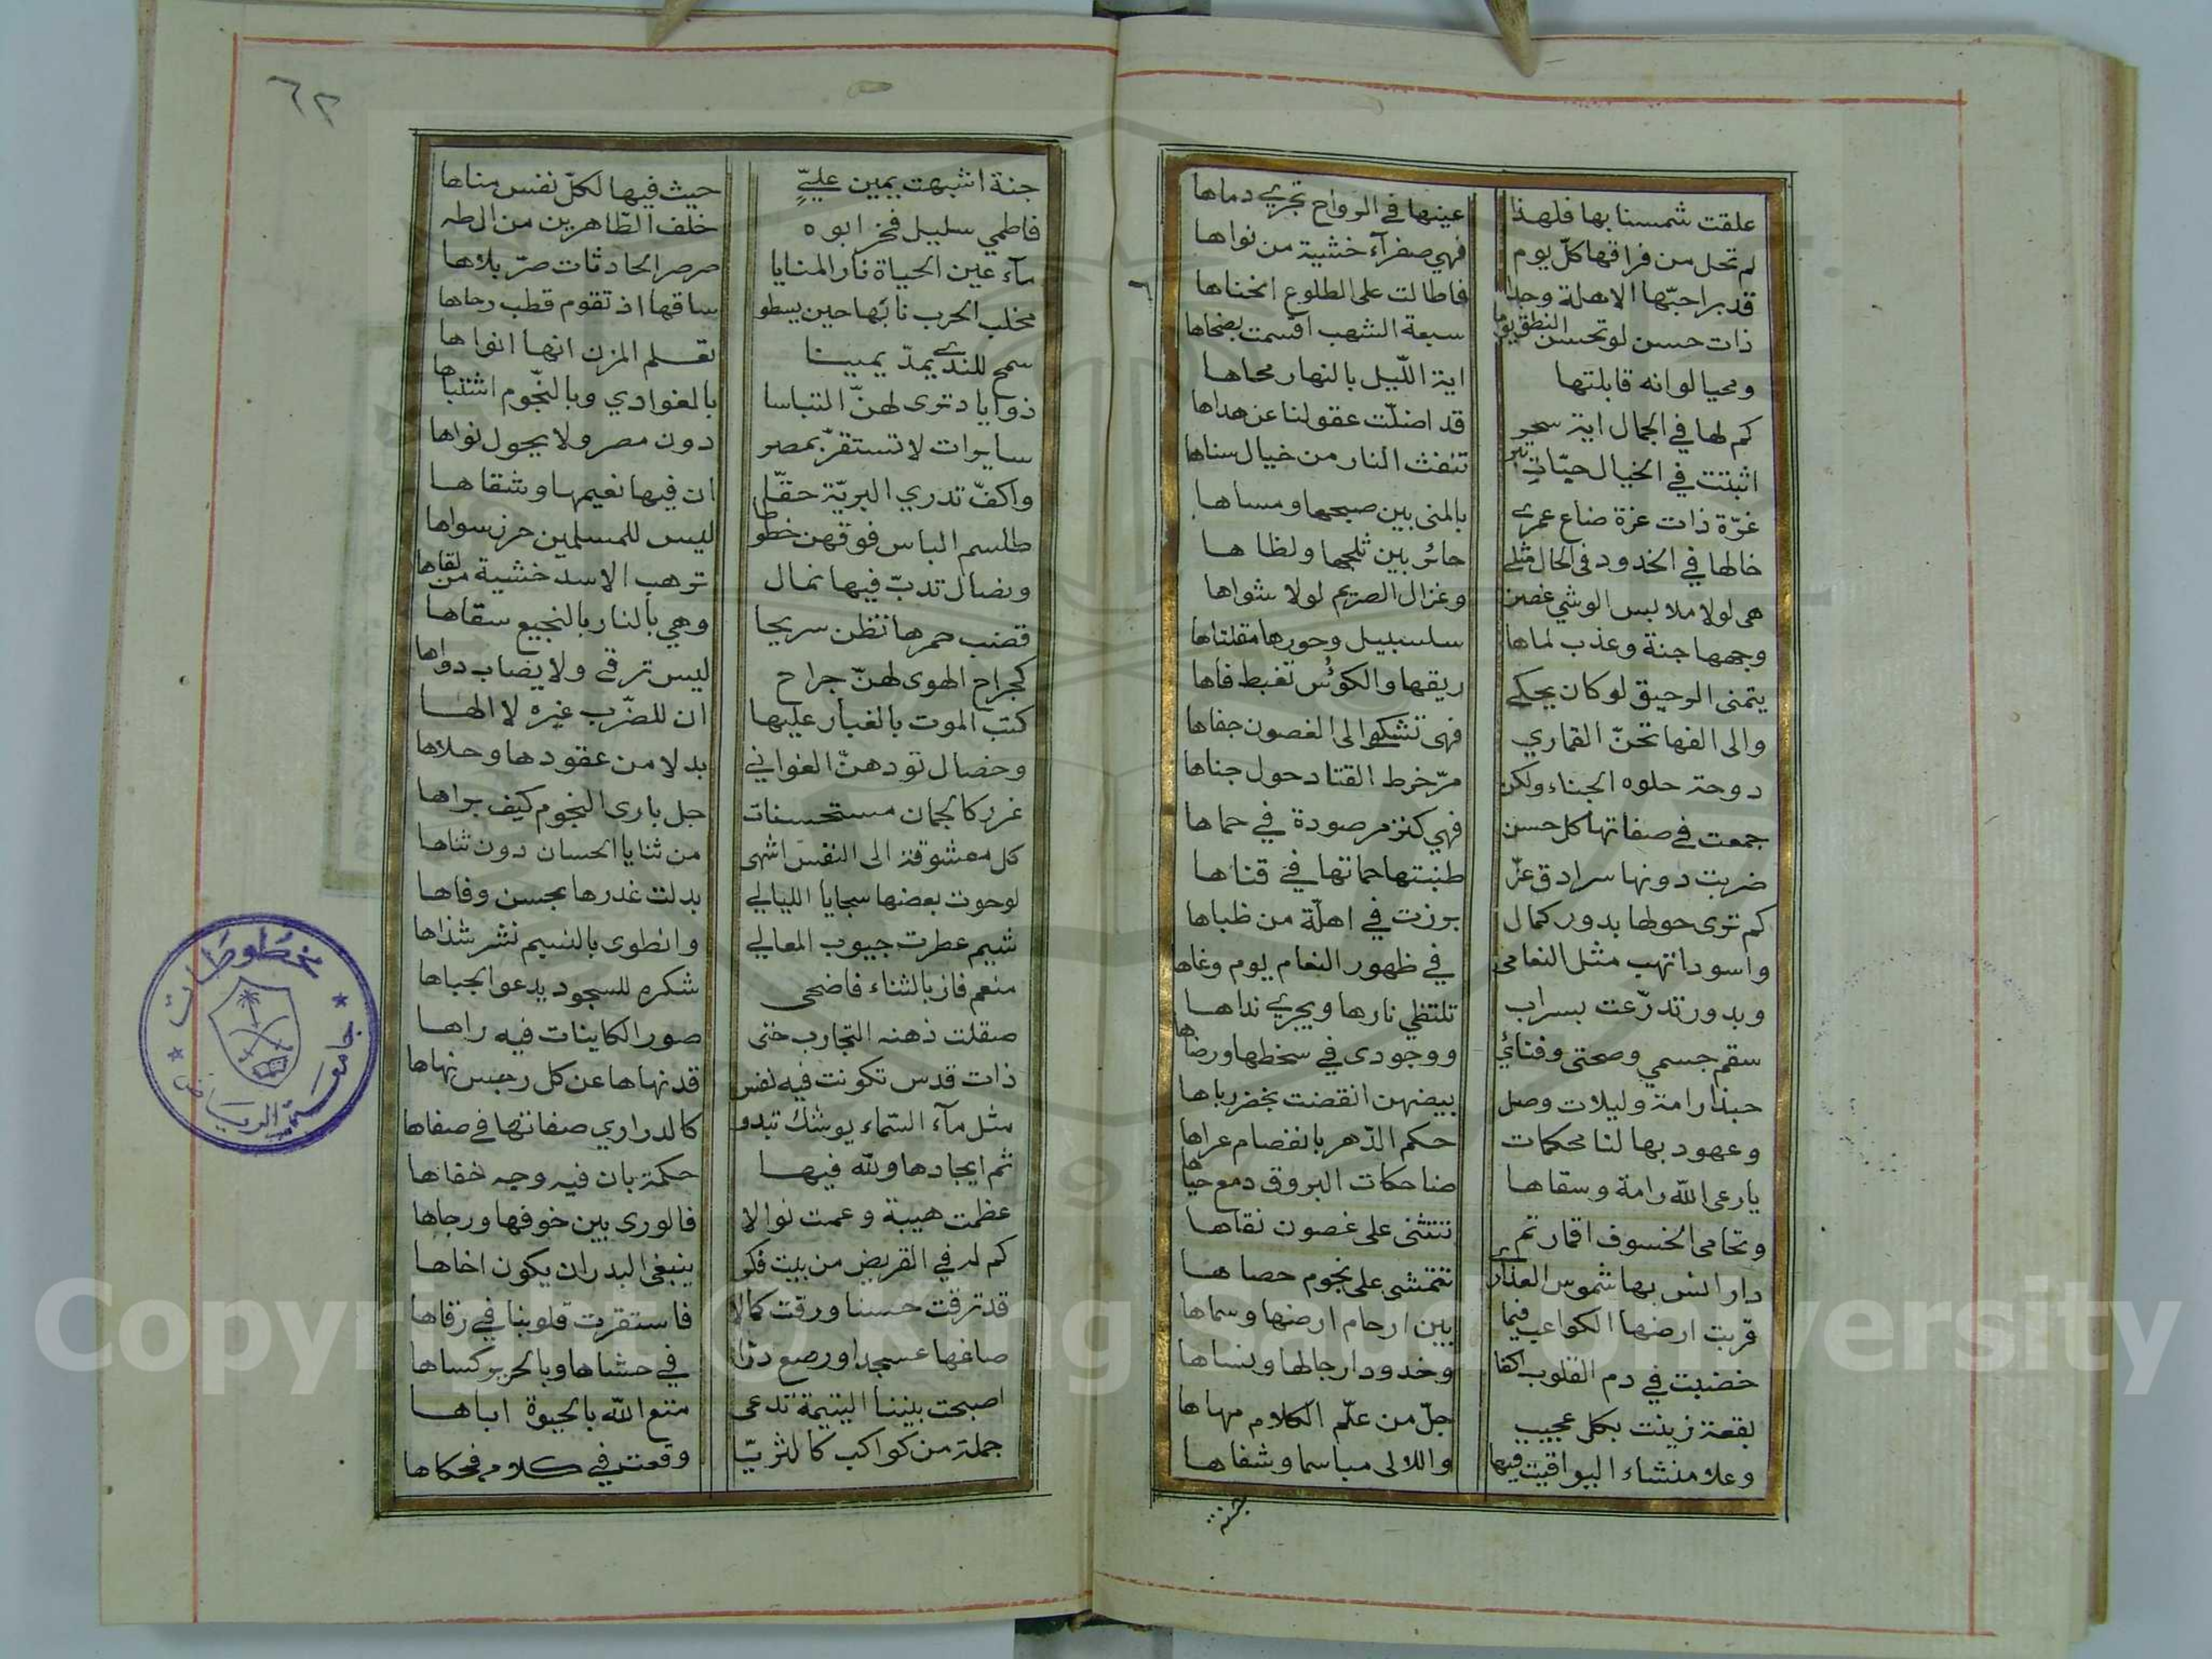 علقت شمسنا بها فلهذا عينها في الرواح تجري دماها
لم تحل من فراقها كلّ يوم فهي صفرآء خشية من نواها
قد براحبّها الاهلة وجدا فاطالت على الطلوع انحناها
ذات حسن لو تحسن النطق يوما سبعة الشهب اقسمت بضحاها
ومحيا لوانه قابلتها اية اللّيل بالنهار محاها
كم لها في الجمال اية سحر قد اضلّت عقولنا عن هداها
اثبتت في الخيال حيّات تبر تنفث النار من خيال سناها
غرّة ذات عزة ضاع عمري بالمنى بين صبحها ومساها
خالها في الخدود في الحال مثلي حائر بين ثلجها ولظاها
هي لولا ملابس الوشي غصن وغزال الصريم لولا شواها
وجهها جنة وعذب لماها سلسبيل وحورها مقلتاها
يتمنى الرحيق لو كان يحكي ريقها والكؤس تغبط فاها
والى الفها تحنّ القماري فهي تشكو الى الغصون جفاها
دوحة حلوه الجناء ولكن مرّ خرط القتاد حول جناها
جمعت في صفاتها كل حسن فهي كنز مرصودة في حماها
ضربت دونها سرادق عزّ طنبتها حماتها في قناها
كم ترى حولها بدور كمال برزت في اهلّة من ظباها
واسودا تهب مثل النعامى في ظهور النعام يوم وغاها
وبدور تدرّعت بسراب تلتظي نارها ويجري نداها
سقم جسمي وصحتى وفنائي ووجودى في سخطها ورضاها
حبذا رامة وليلات وصل بيضهن انقضت بخضر رباها
وعهود بها لنا محكمات حكم الدّهر بانفصام عراها
يارعى الله رامة وسقاها ضاحكات البروق دمع حياها
وتحامى الخسوف اقمار تم تتثنى على غصون نقاها
دار انس بها شموس العذارى تتمشى على نجوم حصاها
قربت ارضها الكواعب فيما بين ارحام ارضها وسماها
خضبت في دم القلوب اكفا وخدودا رجالها ونساها
بقعة زينت بكل عجيب جلّ من علّم الكلام مهاها
وعلا منشاء اليواقيت فيها واللالى مباسما وشفاها
جنة
٦٢
جنة اشبهت يمين عليٍّ حيث فيها لكلّ نفس مناها
فاطمي سليل فخر ابوه خلف الطّاهرين من ال طه
مآء عين الحياة نار المنايا صرصر الحادثات صرّ بلاها
مخلب الحرب نابها حين يسطو ساقها اذ تقوم قطب رحاها
سمح للندى يمدّ يمينا تعلم المزن انها انواها
ذو اياد ترى لهنّ التباسا بالغوادي وبالنّجوم اشتباها
سايرات لا تستقرّ بمصر دون مصر ولا يحول نواها
واكفّ تدري البريّة حقّا ان فيها نعيمها وشقاها
طلسم الباس فوقهن خطوطا ليس للمسلمين حرز سواها
ونضال تدبّ فيها نمال ترهب الاسد خشية من لقاها
قضب حمرها تظن سريحا وهي بالنار بالنجيع سقاها
كجراح الهوى لهنّ جراح ليس ترقى ولا يضاب دواها
كتب الموت بالغبار عليها ان للضّرب غيره لا الها
وخصال تودهنّ الغواني بدلا من عقودها وحلاها
غرر كالجمان مستحسنات جل بارى النجوم كيف براها
كل معشوقة الى النفس اشهى من ثنايا الحسان دون ثناها
لو حوت بعضها سجايا الليالي بدلت غدرها بحسن وفاها
شيم عطرت جيوب المعالي وانطوى بالنسيم نشر شذاها
منعم فاز بالثناء فاضحى شكره للسجود يدعو الجباها
صقلت ذهنه التجارب حتى صور الكاينات فيه راها
ذات قدس تكونت فيه نفس قد نهاها عن كل رجس نهاها
مثل مآء السّماء يوشك تبدو كالدراري صفاتها في صفاها
ثم ايجادها ولله فيها حكمة بان فيه وجه خفاها
عظمت هيبة وعمت نوالا فالورى بين خوفها ورجاها
كم له في القريض من بيت فكر ينبغي البدر ان يكون اخاها
قد ترقت حسنا ورقت كمالا فاستقرت قلوبنا في رقاها
صاغها عسجدا ورصع درّا في حشاها وبالحرير كساها
اصبحت بيننا اليتيمة تدعى متع الله بالحيوة اباها
جملة من كواكب كالثريّا وقعت في كلامه فحكاها
مخطوطات
جامعة الرياض
Copyright © King Saud University